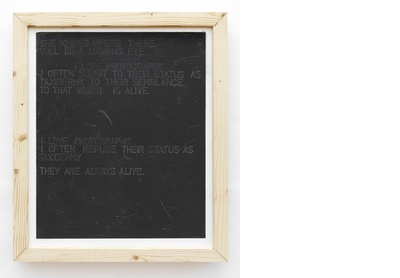 SHE KNOWS WHERE THERE
WILL BE A LOOKING EYE.
I LOVE PHOTOGRAPHS
I OFTEN SUBMIT TO THEIR STATUS AS
TAXIDERMY TO THEIR SEMBLANCE
TO THAT WHICH IS ALIVE.
I LOVE PHOTOGRAPHS
I OFTEN REFUSE THEIR STATUS AS
TAXIDERMY
THEY ARE ALWAYS ALIVE.